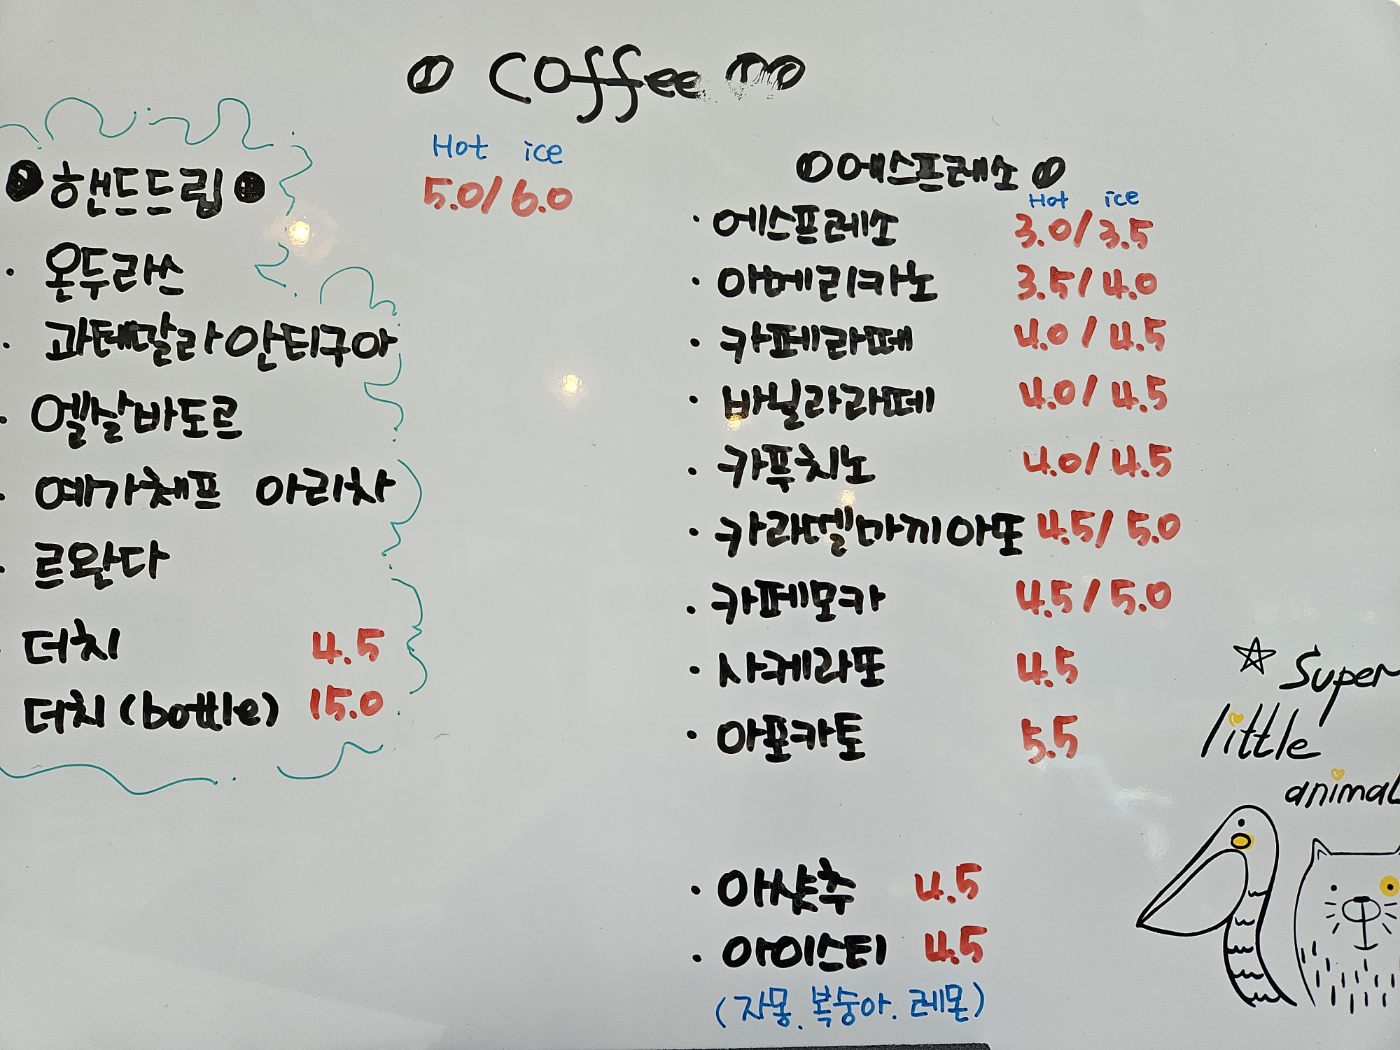 Coffee
Hot ice
핸드드립 5.0/6.0
· 온두라스
· 과테말라 안티구아
· 엘살바도르
· 예가체프 아리차
· 르완다
더치 4.5
더치 (bottle) 15.0
에스프레소
Hot ice
· 에스프레소 3.0/3.5
· 아메리카노 3.5/4.0
· 카페라떼 4.0/4.5
· 바닐라라떼 4.0/4.5
· 카푸치노 4.0/4.5
· 카라멜마끼아또 4.5/5.0
· 카페모카 4.5/5.0
· 사케라또 4.5
· 아포카토 5.5
· 아샷추 4.5
· 아이스티 4.5
(자몽. 복숭아. 레몬)
Super
little
animal